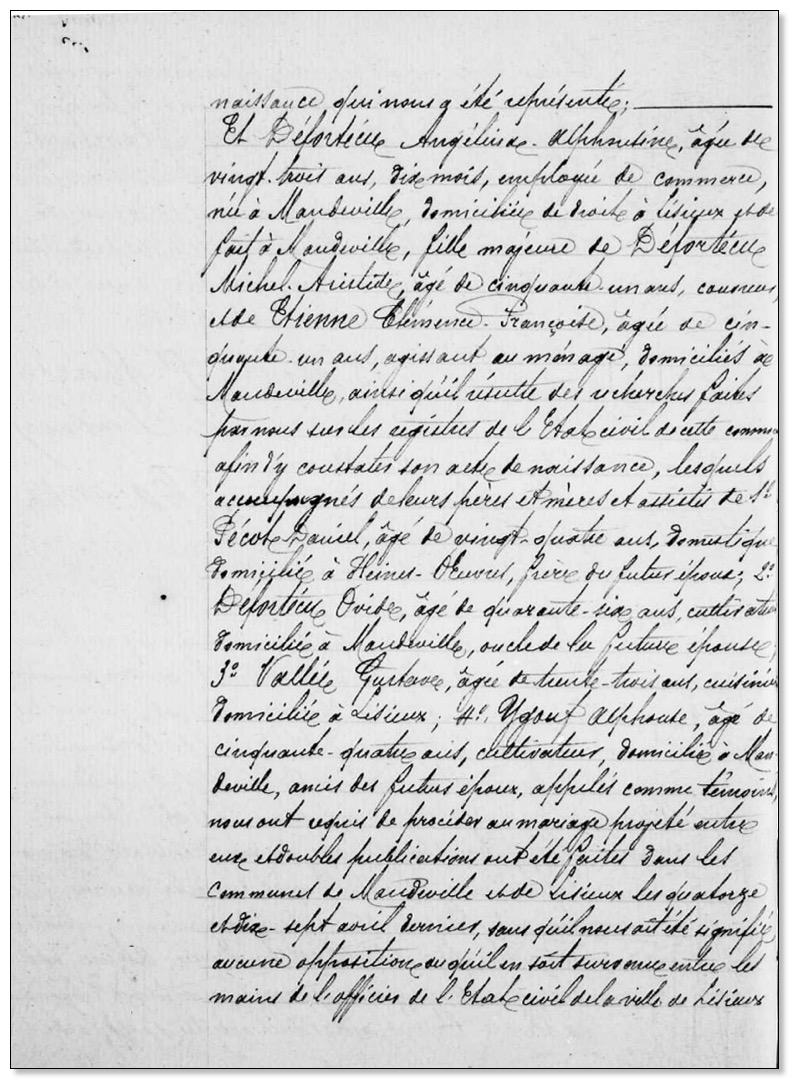 naissance, qui nous a été représenté;
Et Déforteux Angélina-Alphonsine, âgée de
vingt-trois ans, dix mois, employée de commerce,
née à Mandeville, domiciliée de droit à Lisieux et de
fait à Mandeville, fille majeure de Déforteux
Michel-Aristide, âgé de cinquante-un ans, couvreur,
et de Etienne Clémence-Françoise, âgée de cin-
quante-un ans, agissant au ménage, domiciliés à
Mandeville, ainsi qu'il résulte des recherches faites
par nous sur les registres de l'Etat civil de cette commune
afin d'y constater son acte de naissance, lesquels
accompagnés de leurs pères et mères et assistés de 1º
Pécot Daniel, âgé de vingt-quatre ans, domestique
domicilié à Heines-Œuvres, frère du futur époux; 2º
Déforteux Ovide, âgé de quarante-six ans, cultivateur
domicilié à Mandeville, oncle de la future épouse;
3º Vallée Gustave, âgée de trente-trois ans, cuisinier
domicilié à Lisieux; 4º Ygouf Alphonse, âgé de
cinquante-quatre ans, cultivateur, domicilié à Man-
deville, amis des futurs époux, appelés comme témoins,
nous ont requis de procéder au mariage projeté entre
eux et doubles publications ont été faites dans les
communes de Mandeville et de Lisieux les quatorze
et dix-sept avril dernier, sans qu'il nous ait été signifié
aucune opposition ou qu'il en soit survenu entre les
mains de l'officier de l'Etat civil de la ville de Lisieux